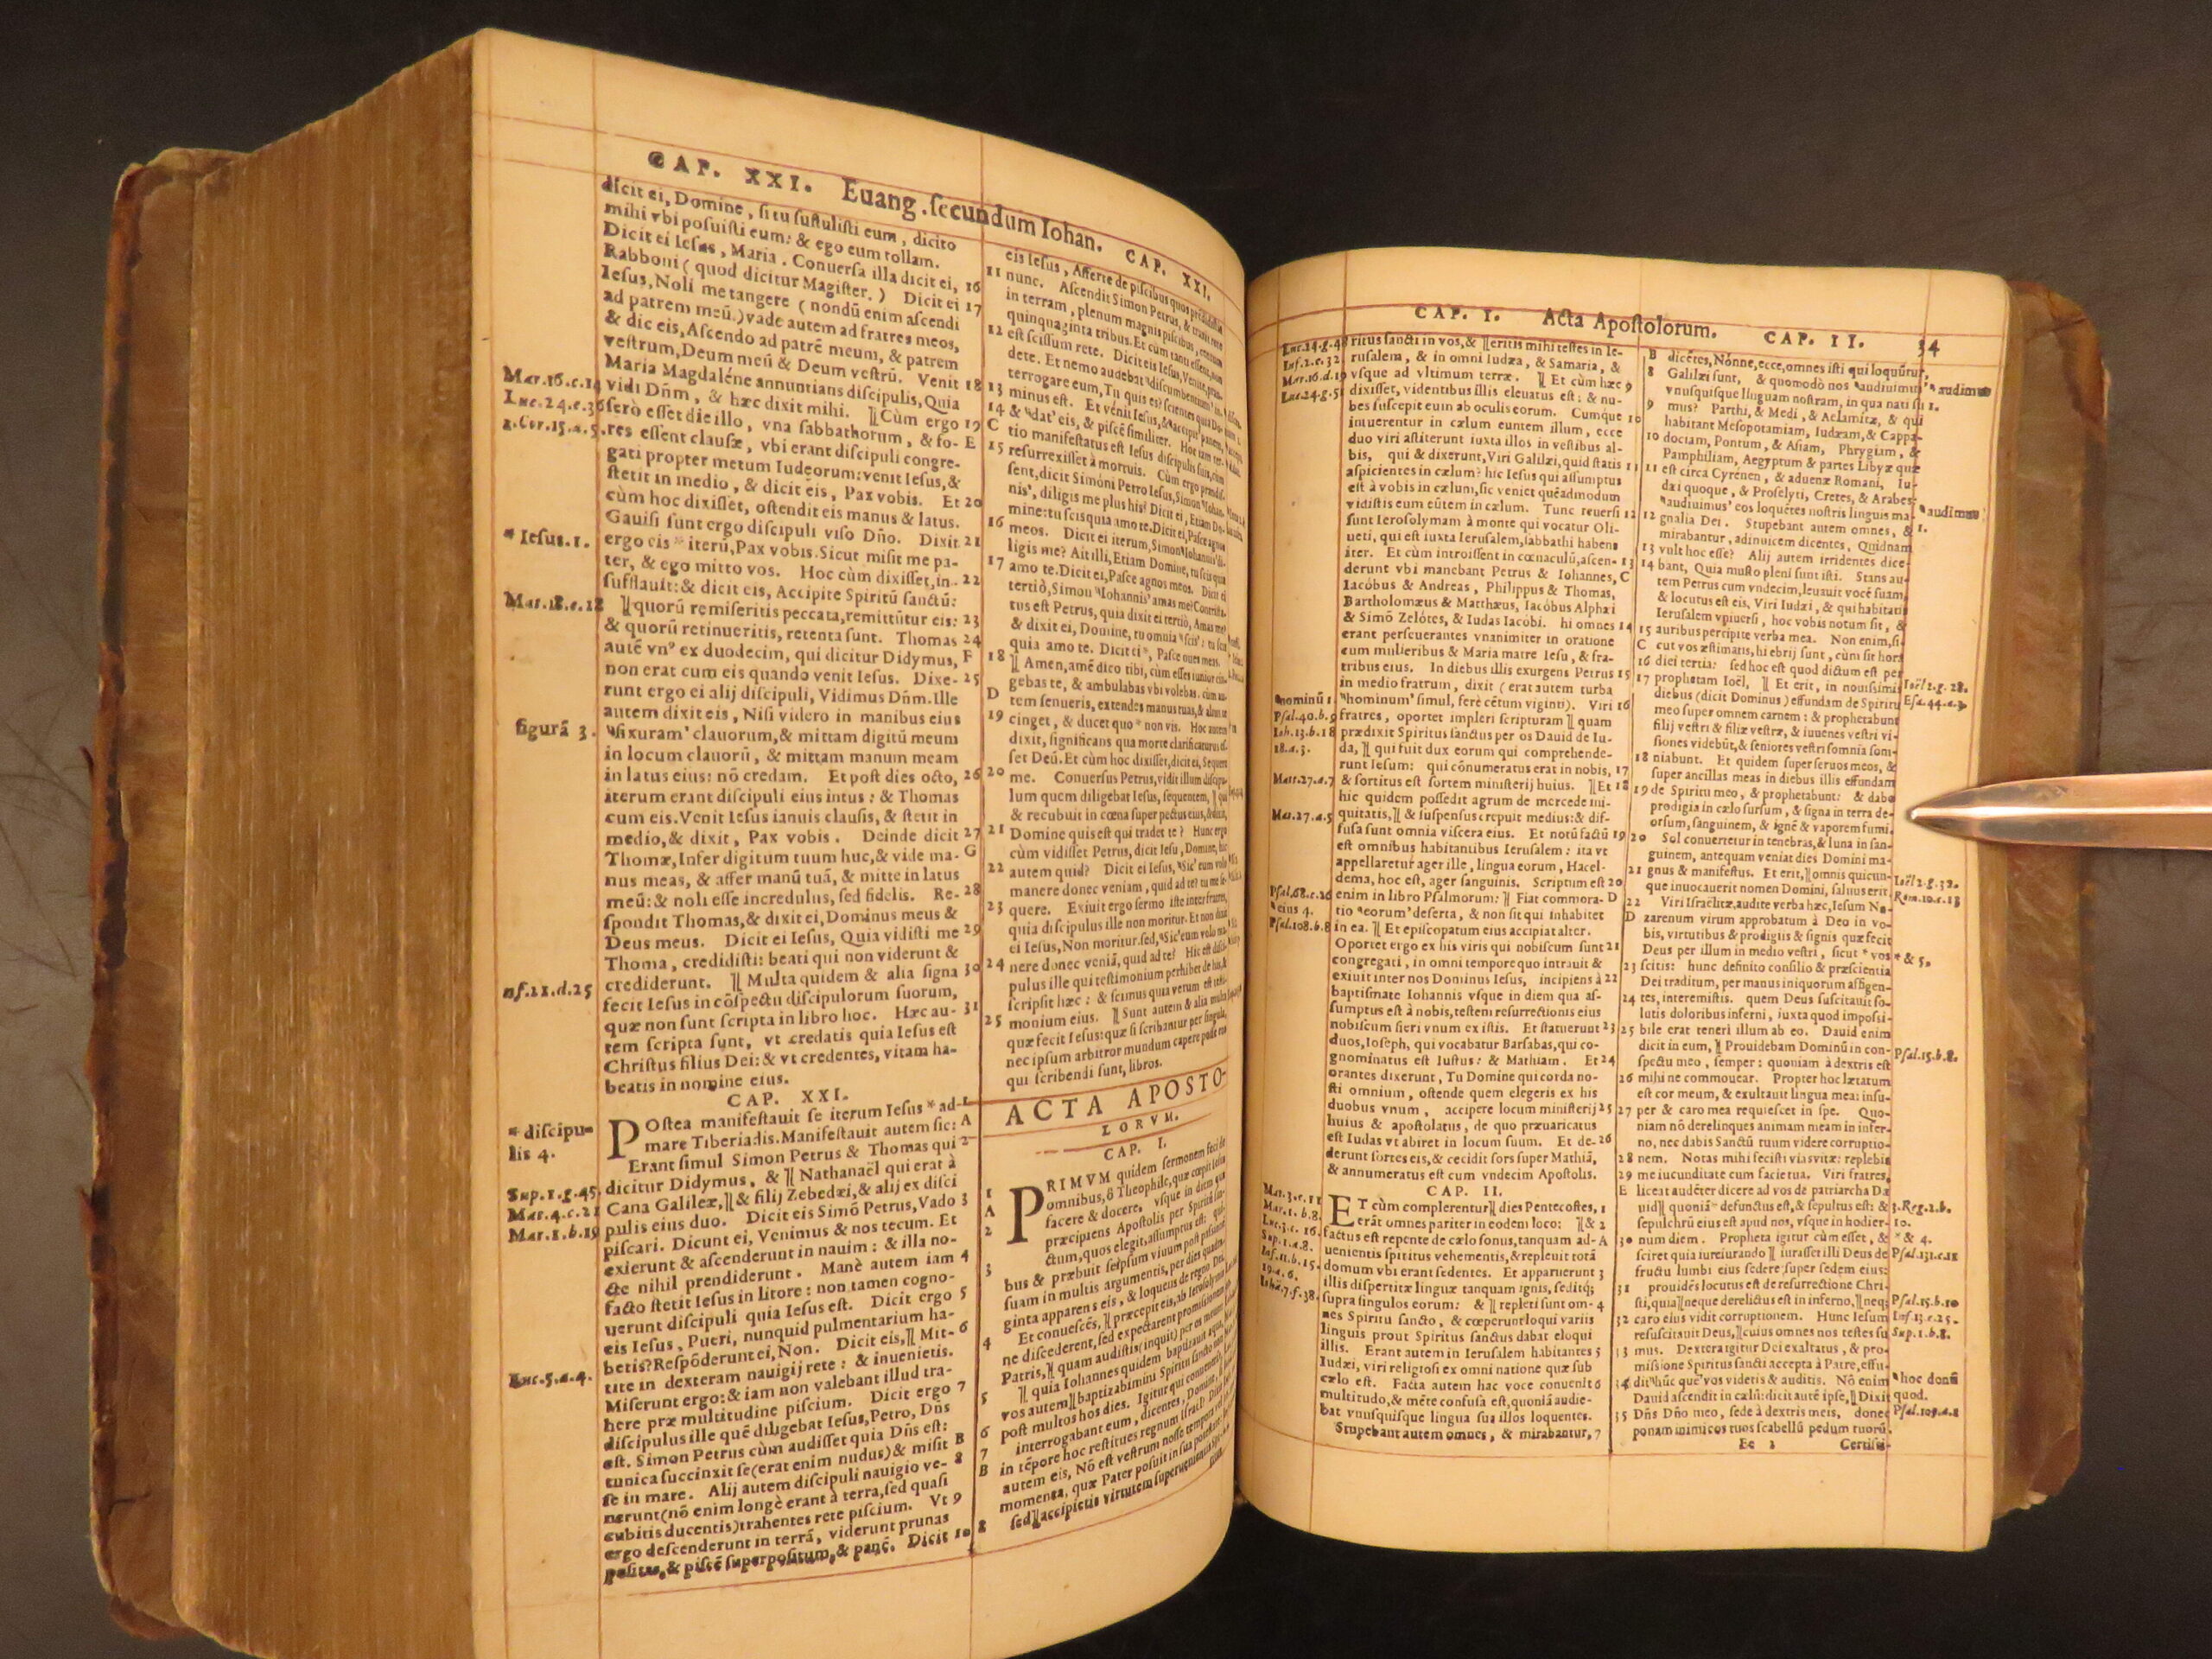 CAP. XXI. Euang. ſecundum Iohan. CAP. XXI.
Mar.16.c.14
Luc.24.e.36
1.Cor.15.a.5.
* Ieſus. 1.
Mat.18.c.18
figurā 3.
* diſcipu=
lis 4.
Sup.1.g.45.
Mat.4.c.21
Mar.1.b.19
Luc.5.a.4.
dicit ei, Domine, ſi tu ſuſtuliſti eum, dicito
mihi vbi poſuiſti eum: & ego eum tollam.
Dicit ei Ieſus, Maria. Conuerſa illa dicit ei, 16
Rabboni (quod dicitur Magiſter.) Dicit ei 17
Ieſus, Noli me tangere (nondū enim aſcendi
ad patrem meū.) vade autem ad fratres meos,
& dic eis, Aſcendo ad patrē meum, & patrem
veſtrum, Deum meū & Deum veſtrū. Venit 18
Maria Magdaléne annuntians diſcipulis, Quia
vidi Dn̄m, & hæc dixit mihi. ⁅Cùm ergo 19
ſerò eſſet die illo, vna ſabbathorum, & fo- E
res eſſent clauſæ, vbi erant diſcipuli congre-
gati propter metum Iudæorum: venit Ieſus, &
ſtetit in medio, & dicit eis, Pax vobis. Et 20
cùm hoc dixiſſet, oſtendit eis manus & latus.
Gauiſi ſunt ergo diſcipuli viſo Dn̄o. Dixit 21
ergo eis * iterū, Pax vobis. Sicut miſit me pa-
ter, & ego mitto vos. Hoc cùm dixiſſet, in- 22
ſufflauit: & dicit eis, Accipite Spiritū ſanctū:
⁅quorū remiſeritis peccata, remittūtur eis: 23
& quorū retinueritis, retenta ſunt. Thomas 24
autē vnꝰ ex duodecim, qui dicitur Didymus, F
non erat cum eis quando venit Ieſus. Dixe- 25
runt ergo ei alij diſcipuli, Vidimus Dn̄m. Ille
autem dixit eis, Niſi videro in manibus eius
"fixuram' clauorum, & mittam digitū meum
in locum clauorū, & mittam manum meam
in latus eius: nō credam. Et poſt dies octo, 26
iterum erant diſcipuli eius intus: & Thomas
cum eis. Venit Ieſus ianuis clauſis, & ſtetit in
medio, & dixit, Pax vobis. Deinde dicit 27
Thomæ, Infer digitum tuum huc, & vide ma- G
nus meas, & affer manū tuā, & mitte in latus
meū: & noli eſſe incredulus, ſed fidelis. Re- 28
ſpondit Thomas, & dixit ei, Dominus meus &
Deus meus. Dicit ei Ieſus, Quia vidiſti me 29
Thoma, credidiſti: beati qui non viderunt &
crediderunt. ⁅Multa quidem & alia ſigna 30
fecit Ieſus in cōſpectu diſcipulorum ſuorum,
quæ non ſunt ſcripta in libro hoc. Hæc au- 31
tem ſcripta ſunt, vt credatis quia Ieſus eſt
Chriſtus filius Dei: & vt credentes, vitam ha-
beatis in nomine eius.
CAP. XXI.
POſtea manifeſtauit ſe iterum Ieſus * ad 1
mare Tiberiadis. Manifeſtauit autem ſic: A
Erant ſimul Simon Petrus & Thomas qui 2
dicitur Didymus, & ⁅Nathanaël qui erat à
Cana Galilææ, ⁅& filij Zebedæi, & alij ex diſci
pulis eius duo. Dicit eis Simō Petrus, Vado 3
piſcari. Dicunt ei, Venimus & nos tecum. Et
exierunt & aſcenderunt in nauim: & illa no-
cte nihil prendiderunt. Manè autem iam 4
facto ſtetit Ieſus in litore: non tamen cogno-
uerunt diſcipuli quia Ieſus eſt. Dicit ergo 5
eis Ieſus, Pueri, nunquid pulmentarium ha-
betis? Reſpōderunt ei, Non. Dicit eis, ⁅Mit- 6
tite in dexteram nauigij rete: & inuenietis.
Miſerunt ergo: & iam non valebant illud tra-
here præ multitudine piſcium. Dicit ergo 7
diſcipulus ille quē diligebat Ieſus, Petro, Dn̄s
eſt. Simon Petrus cùm audiſſet quia Dn̄s eſt:
tunica ſuccinxit ſe (erat enim nudus) & miſit B
ſe in mare. Alij autem diſcipuli nauigio ve- 8
nerunt (nō enim longè erant à terra, ſed quaſi
cubitis ducentis) trahentes rete piſcium. Vt 9
ergo deſcenderunt in terrā, viderunt prunas
poſitas, & piſcē ſuperpoſitum, & panē. Dicit 10
eis Ieſus, Afferte de piſcibus quos prēdidiſtis
11 nunc. Aſcendit Simon Petrus, & traxit rete
in terram, plenum magnis piſcibus, centum
quinquaginta tribus. Et cùm tanti eſſent, non
12 eſt ſciſſum rete. Dicit eis Ieſus, Venite, pran-
dete. Et nemo audebat "diſcumbentium' in-
terrogare eum, Tu quis es? ſcientes quia Do-
13 minus eſt. Et venit Ieſus, & "accipit' panem,
14 & "dat' eis, & piſcē ſimiliter. Hoc iam ter-
C tio manifeſtatus eſt Ieſus diſcipulis ſuis, cùm
15 reſurrexiſſet à mortuis. Cùm ergo prandiſ-
ſent, dicit Simóni Petro Ieſus, Simon "Iohan-
nis', diligis me plus his? Dicit ei, Etiam Do-
mine: tu ſcis quia amo te. Dicit ei, Paſce agnos
16 meos. Dicit ei iterum, Simon "Iohannis' di-
ligis me? Ait illi, Etiam Domine, tu ſcis quia
17 amo te. Dicit ei, Paſce agnos meos. Dicit ei
tertiò, Simon "Iohannis' amas me? Contriſta-
tus eſt Petrus, quia dixit ei tertiò, Amas me?
& dixit ei, Domine, tu omnia "ſcis': tu ſcis
quia amo te. Dicit ei *, Paſce oues meas.
18 ⁅Amen, amē dico tibi, cùm eſſes iunior cin-
gebas te, & ambulabas vbi volebas. cùm au-
D tem ſenueris, extendes manus tuas, & alius te
19 cinget, & ducet quo * non vis. Hoc autem
dixit, ſignificans qua morte clarificaturus eſ-
ſet Deū. Et cùm hoc dixiſſet, dicit ei, Sequere
20 me. Conuerſus Petrus, vidit illum diſcipu-
lum quem diligebat Ieſus, ſequentem, ⁅qui
& recubuit in cœna ſuper pectus eius, & dixit,
21 Domine quis eſt qui tradet te? Hunc ergo
cùm vidiſſet Petrus, dicit Ieſu, Domine, hic
22 autem quid? Dicit ei Ieſus, "Sic' eum volo
manere donec veniam, quid ad te? tu me ſe-
23 quere. Exiuit ergo ſermo iſte inter fratres,
quia diſcipulus ille non moritur. Et non dixit
ei Ieſus, Non moritur. ſed, "Sic' eum volo ma-
24 nere donec veniā, quid ad te? Hic eſt diſci-
pulus ille qui teſtimonium perhibet de his, &
ſcripſit hæc: & ſcimus quia verum eſt teſti-
25 monium eius. ⁅Sunt autem & alia multa
quæ fecit Ieſus: quæ ſi ſcribantur per ſingula,
nec ipſum arbitror mundum capere poſſe eos
qui ſcribendi ſunt, libros.
ACTA APOSTO-
LORVM.
CAP. I.
1 PRIMVM quidem ſermonem feci de
A omnibus, ô Theophile, quæ cœpit Ieſus
facere & docere, vſque in diem qua
2 præcipiens Apoſtolis per Spiritū ſan-
ctum, quos elegit, aſſumptus eſt: qui-
3 bus & præbuit ſeipſum viuum poſt paſſionē
ſuam in multis argumentis, per dies quadra-
ginta apparens eis, & loquens de regno Dei.
4 Et conueſcēs, ⁅præcepit eis, ab Ieroſolymis
ne diſcederent, ſed expectarent promiſſionem
Patris, ⁅quam audiſtis (inquit) per os meum:
5 ⁅quia Iohannes quidem baptizauit aqua,
vos autem ⁅baptizabimini Spiritu ſancto non
6 poſt multos hos dies. Igitur qui conuenerāt,
interrogabant eum, dicentes, Domine, ſi
7 in tēpore hoc reſtitues regnum Iſraël? Dixit
B autem eis, Nō eſt veſtrum noſſe tempora vel
momenta, quæ Pater poſuit in ſua poteſtate:
8 ſed ⁅accipietis virtutem ſuperuenientis Spi-
CAP. I. Acta Apoſtolorum. CAP. II. 34
Luc.24.g.48
Inf.2.c.32
Mar.16.d.19
Luc.24.g.51
"nominū 1
Pſal.40.b.9
Ioh.13.b.18
18.a.3.
Matt.27.a.7
Mat.27.a.5
Pſal.68.e.26
"eius 4.
Pſal.108.b.8
Mat.3.c.11
Mar.1.b.8.
Luc.3.c.16.
Sup.1.a.8.
Inf.11.b.15.
19.a.6.
Iohā.7.f.38.
ritus ſancti in vos, & ⁅eritis mihi teſtes in Ie-
ruſalem, & in omni Iudæa, & Samaria, &
vſque ad vltimum terræ. ⁅Et cùm hæc 9
dixiſſet, videntibus illis eleuatus eſt: & nu-
bes ſuſcepit eum ab oculis eorum. Cumque 10
intuerentur in cælum euntem illum, ecce
duo viri aſtiterunt iuxta illos in veſtibus al-
bis, qui & dixerunt, Viri Galilæi, quid ſtatis 11
aſpicientes in cælum? hic Ieſus qui aſſumptus
eſt à vobis in cælum, ſic veniet quēadmodum
vidiſtis eum eūtem in cælum. Tunc reuerſi 12
ſunt Ieroſolymam à monte qui vocatur Oli-
ueti, qui eſt iuxta Ieruſalem, ſabbathi habens
iter. Et cùm introiſſent in cœnaculū, aſcen- 13
derunt vbi manebant Petrus & Iohannes, C
Iacóbus & Andreas, Philippus & Thomas,
Bartholomæus & Matthæus, Iacóbus Alphæi
& Simō Zelótes, & Iudas Iacóbi. hi omnes 14
erant perſeuerantes vnanimiter in oratione
cum mulieribus & Maria matre Ieſu, & fra-
tribus eius. In diebus illis exurgens Petrus 15
in medio fratrum, dixit (erat autem turba
"hominum' ſimul, ferè cētum viginti). Viri 16
fratres, oportet impleri ſcripturam ⁅quam
prædixit Spiritus ſanctus per os Dauid de Iu-
da, ⁅qui fuit dux eorum qui comprehende-
runt Ieſum: qui cōnumeratus erat in nobis, 17
& ſortitus eſt ſortem miniſterij huius. ⁅Et 18
hic quidem poſſedit agrum de mercede ini-
quitatis, ⁅& ſuſpenſus crepuit medius: & dif-
fuſa ſunt omnia viſcera eius. Et notū factū 19
eſt omnibus habitantibus Ieruſalem: ita vt
appellaretur ager ille, lingua eorum, Hacel-
dema, hoc eſt, ager ſanguinis. Scriptum eſt 20
enim in libro Pſalmorum: ⁅Fiat commora- D
tio "eorum' deſerta, & non ſit qui inhabitet
in ea. ⁅Et epiſcopatum eius accipiat alter.
Oportet ergo ex his viris qui nobiſcum ſunt 21
congregati, in omni tempore quo intrauit &
exiuit inter nos Dominus Ieſus, incipiēs à 22
baptiſmate Iohannis vſque in diem qua aſ-
ſumptus eſt à nobis, teſtem reſurrectionis eius
nobiſcum fieri vnum ex iſtis. Et ſtatuerunt 23
duos, Ioſeph, qui vocabatur Barſabas, qui co-
gnominatus eſt Iuſtus: & Mathiam. Et 24
orantes dixerunt, Tu Domine qui corda no-
ſti omnium, oſtende quem elegeris ex his
duobus vnum, accipere locum miniſterij 25
huius & apoſtolatus, de quo præuaricatus
eſt Iudas vt abiret in locum ſuum. Et de- 26
derunt ſortes eis, & cecidit ſors ſuper Mathiā,
& annumeratus eſt cum vndecim Apoſtolis.
CAP. II.
ET cùm complerentur ⁅dies Pentecoſtes, 1
erāt omnes pariter in eodem loco: ⁅& 2
factus eſt repente de cælo ſonus, tanquam ad- A
uenientis ſpiritus vehementis, & repleuit totā
domum vbi erant ſedentes. Et apparuerunt 3
illis diſpertitæ linguæ tanquam ignis, ſeditq;
ſupra ſingulos eorum: & ⁅repleti ſunt om- 4
nes Spiritu ſancto, & cœperunt loqui variis
linguis prout Spiritus ſanctus dabat eloqui
illis. Erant autem in Ieruſalem habitantes 5
Iudæi, viri religioſi ex omni natione quæ ſub
cælo eſt. Facta autem hac voce conuenit 6
multitudo, & mēte confuſa eſt, quoniā audie-
bat vnuſquiſque lingua ſua illos loquentes.
Stupebant autem omnes, & mirabantur, 7
B dicētes, Nónne, ecce, omnes iſti qui loquūtur,
8 Galilæi ſunt, & quomodò nos "audiuimus'
vnuſquiſque linguam noſtram, in qua nati ſu
9 mus? Parthi, & Medi, & Aelamitæ, & qui
habitant Meſopotamiam, Iudæam, & Cappa-
10 dociam, Pontum, & Aſiam, Phrygiam, &
Pamphiliam, Aegyptum & partes Libyæ quæ
11 eſt circa Cyrénen, & aduenæ Romani, Iu-
dæi quoque, & Proſelyti, Cretes, & Arabes:
"audiuimus' eos loquētes noſtris linguis ma-
12 gnalia Dei. Stupebant autem omnes, &
mirabantur, adinuicem dicentes, Quidnam
13 vult hoc eſſe? Alij autem irridentes dice-
14 bant, Quia muſto pleni ſunt iſti. Stans au-
tem Petrus cum vndecim, leuauit vocē ſuam,
& locutus eſt eis, Viri Iudæi, & qui habitatis
Ieruſalem vpiuerſi, hoc vobis notum ſit, &
15 auribus percipite verba mea. Non enim, ſi-
C cut vos æſtimatis, hi ebrij ſunt, cùm ſit hora
16 diei tertia: ſed hoc eſt quod dictum eſt per
17 prophetam Ioël, ⁅Et erit, in nouiſſimis
diebus (dicit Dominus) effundam de Spiritu
meo ſuper omnem carnem: & prophetabunt
filij veſtri & filiæ veſtræ, & iuuenes veſtri vi-
ſiones videbūt, & ſeniores veſtri ſomnia ſom-
18 niabunt. Et quidem ſuper ſeruos meos, &
ſuper ancillas meas in diebus illis effundam
19 de Spiritu meo, & prophetabunt: & dabo
prodigia in cælo ſurſum, & ſigna in terra de-
orſum, ſanguinem, & ignē & vaporem fumi.
20 Sol conuertetur in tenebras, & luna in ſan-
guinem, antequam veniat dies Domini ma-
21 gnus & manifeſtus. Et erit, ⁅omnis quicun-
que inuocauerit nomen Domini, ſaluus erit.
22 Viri Iſraëlitæ, audite verba hæc, Ieſum Na-
D zarenum virum approbatum à Deo in vo-
bis, virtutibus & prodigiis & ſignis quæ fecit
Deus per illum in medio veſtri, ſicut * vos
23 ſcitis: hunc definito conſilio & præſcientia
Dei traditum, per manus iniquorum affigen-
24 tes, interemiſtis. quem Deus ſuſcitauit ſo-
lutis doloribus inferni, iuxta quod impoſſi-
25 bile erat teneri illum ab eo. Dauid enim
dicit in eum, ⁅Prouidebam Dominū in con-
ſpectu meo, ſemper: quoniam à dextris eſt
26 mihi ne commouear. Propter hoc lætatum
eſt cor meum, & exultauit lingua mea: inſu-
27 per & caro mea requieſcet in ſpe. Quo-
niam nō derelinques animam meam in infer-
no, nec dabis Sanctū tuum videre corruptio-
28 nem. Notas mihi feciſti vias vitæ: replebis
29 me iucunditate cum facie tua. Viri fratres,
E liceat audēter dicere ad vos de patriarcha Da
uid ⁅quoniā * defunctus eſt, & ſepultus eſt: &
ſepulchrū eius eſt apud nos, vſque in hodier-
30 num diem. Propheta igitur cùm eſſet, &
ſciret quia iureiurando ⁅iuraſſet illi Deus de
fructu lumbi eius ſedere ſuper ſedem eius:
31 prouidēs locutus eſt de reſurrectione Chri-
ſti, quia ⁅neque derelictus eſt in inferno, ⁅neq;
32 caro eius vidit corruptionem. Hunc Ieſum
reſuſcitauit Deus, ⁅cuius omnes nos teſtes ſu
33 mus. Dextera igitur Dei exaltatus, & pro-
miſſione Spiritus ſancti accepta à Patre, effu-
34 dit "hūc que' vos videtis & auditis. Nō enim
Dauid aſcendit in cælū: dicit autē ipſe, ⁅Dixit
35 Dn̄s Dn̄o meo, ſede à dextris meis, donec
ponam inimicos tuos ſcabellū pedum tuorū.
Ee 2 Certiſſi-
"audimus
1.
"audimus
1.
Ioël 2.g.28.
Eſa.44.a.3.
Ioël 2.g.32.
Rom.10.c.13
* & 5.
Pſal.15.b.8.
3.Reg.2.b.
10.
* & 4.
Pſal.131.c.11
Pſal.15.b.10
Inf.13.e.25.
Sup.1.b.8.
"hoc donū
quod.
Pſal.109.a.1